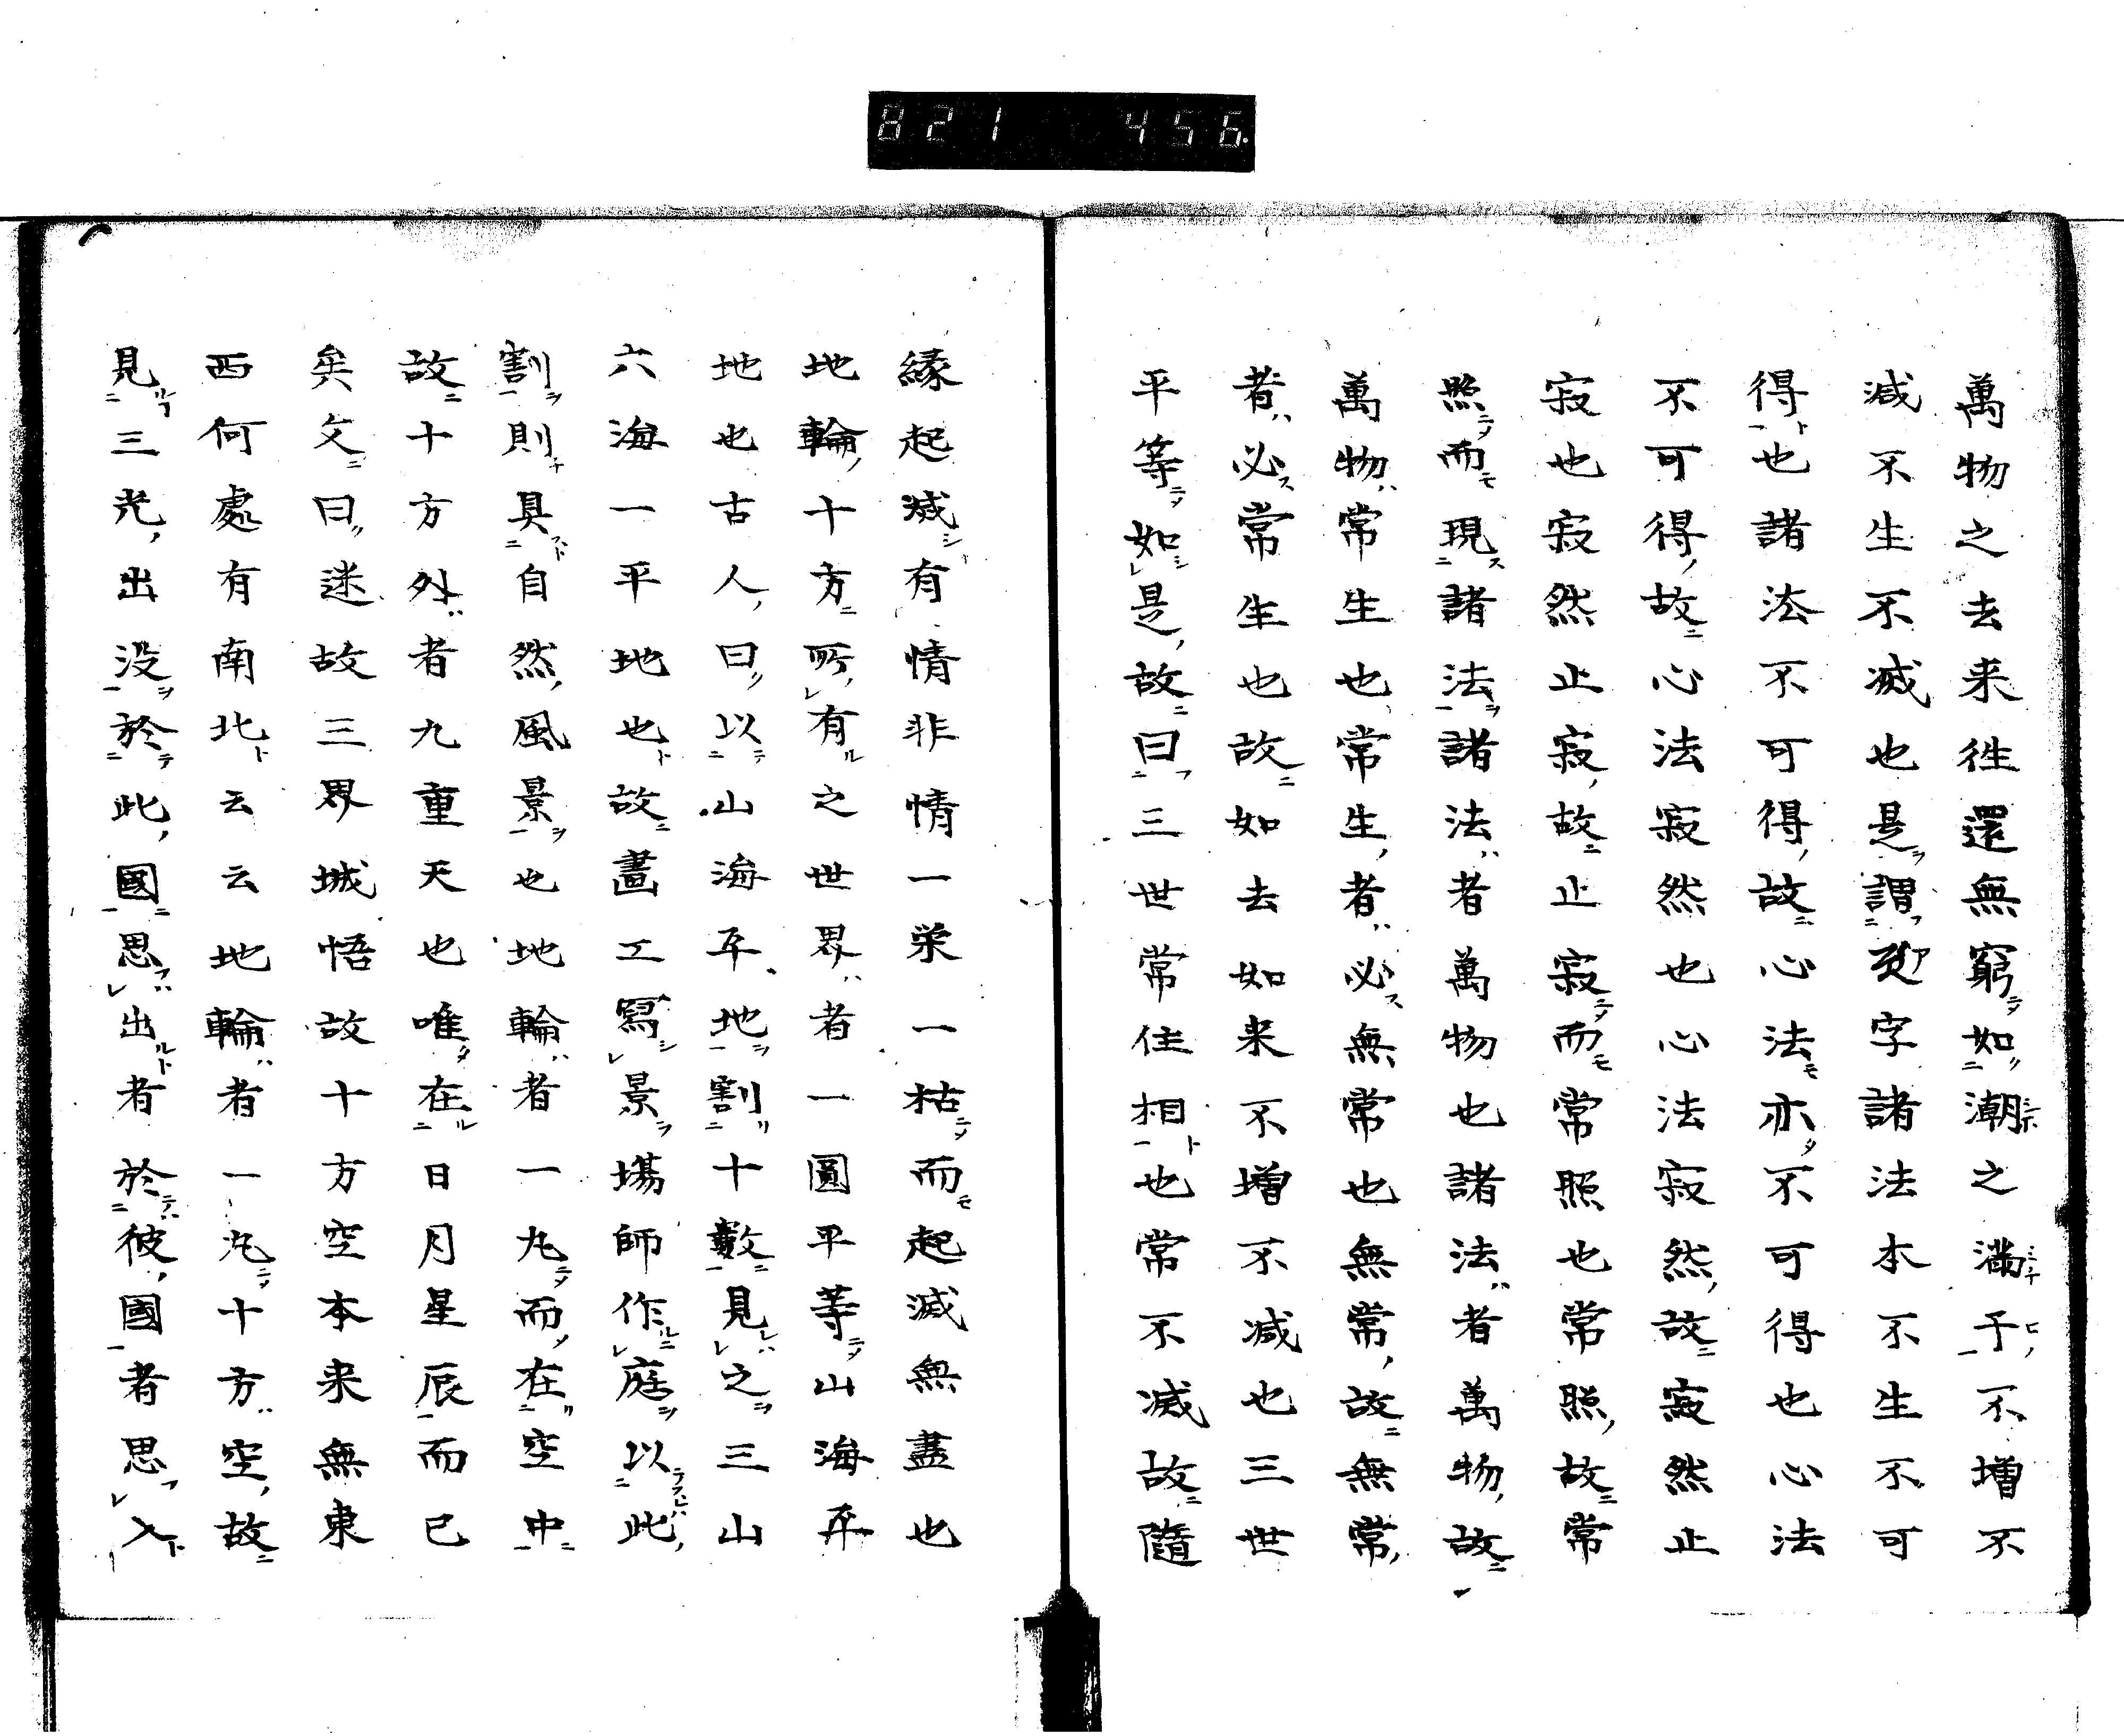 821 456.
萬物之去来徃還無窮如潮之満干不増不
減不生不滅也是謂字諸法本不生不可
得也諸法不可得故心法亦不可得也心法
不可得故心法寂然也心法寂然故寂然止
寂也寂然止寂故止寂而常照也常照故常
照而現諸法諸法者萬物也諸法者萬物故
萬物常生也常生者必無常也無常故無常
者必常生也故如去如来不増不減也三世
平等如是故曰三世常住相也常不滅故隨
縁起滅有情非情一栄一枯而起滅無盡也
地輪十方所有之世界者一圓平等山海平
地也古人曰以山海平地割十數見之三山
六海一平地也故畫工寫景場師作庭以此
割則具自然風景也地輪者一丸而在空中
故十方外者九重天也唯在日月星辰而已
矣文曰迷故三界城悟故十方空本来無東
西何處有南北云云地輪者一丸十方空故
見三光出没於此國思出者於彼國者思入